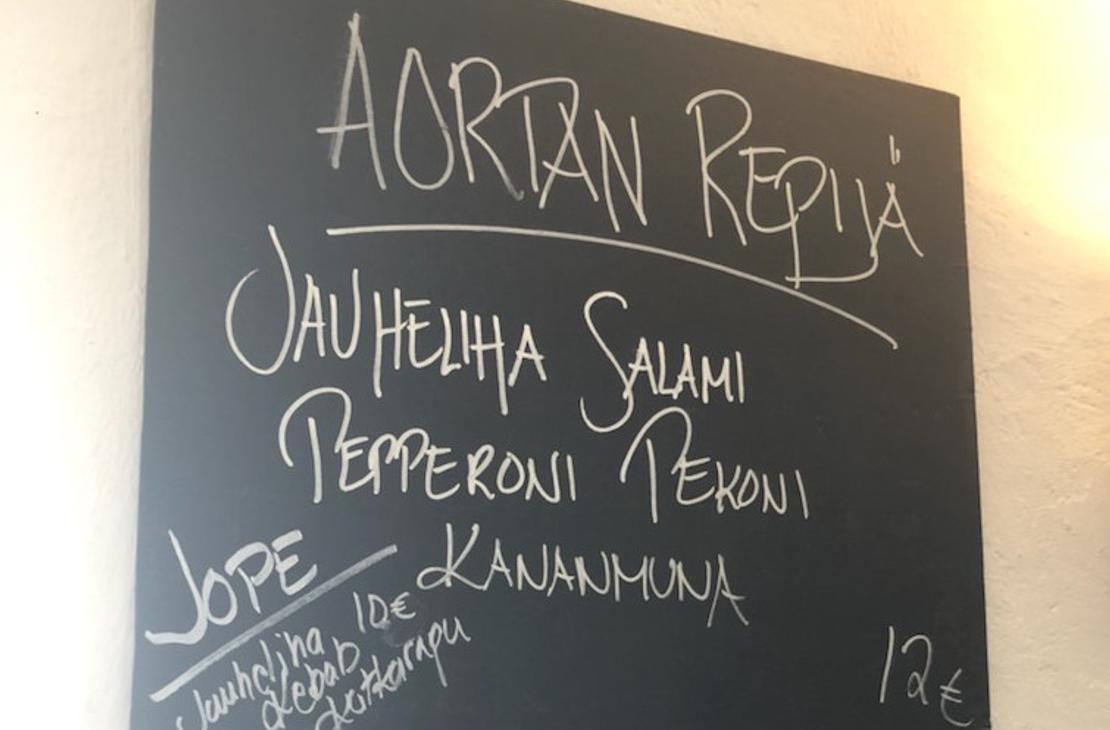 AORTAN REPIJÄ
JAUHELIHA SALAMI
PEPPERONI PEKONI
KANANMUNA
12€
JOPE
10€
Jauheliha
Kebab
Katkarapu